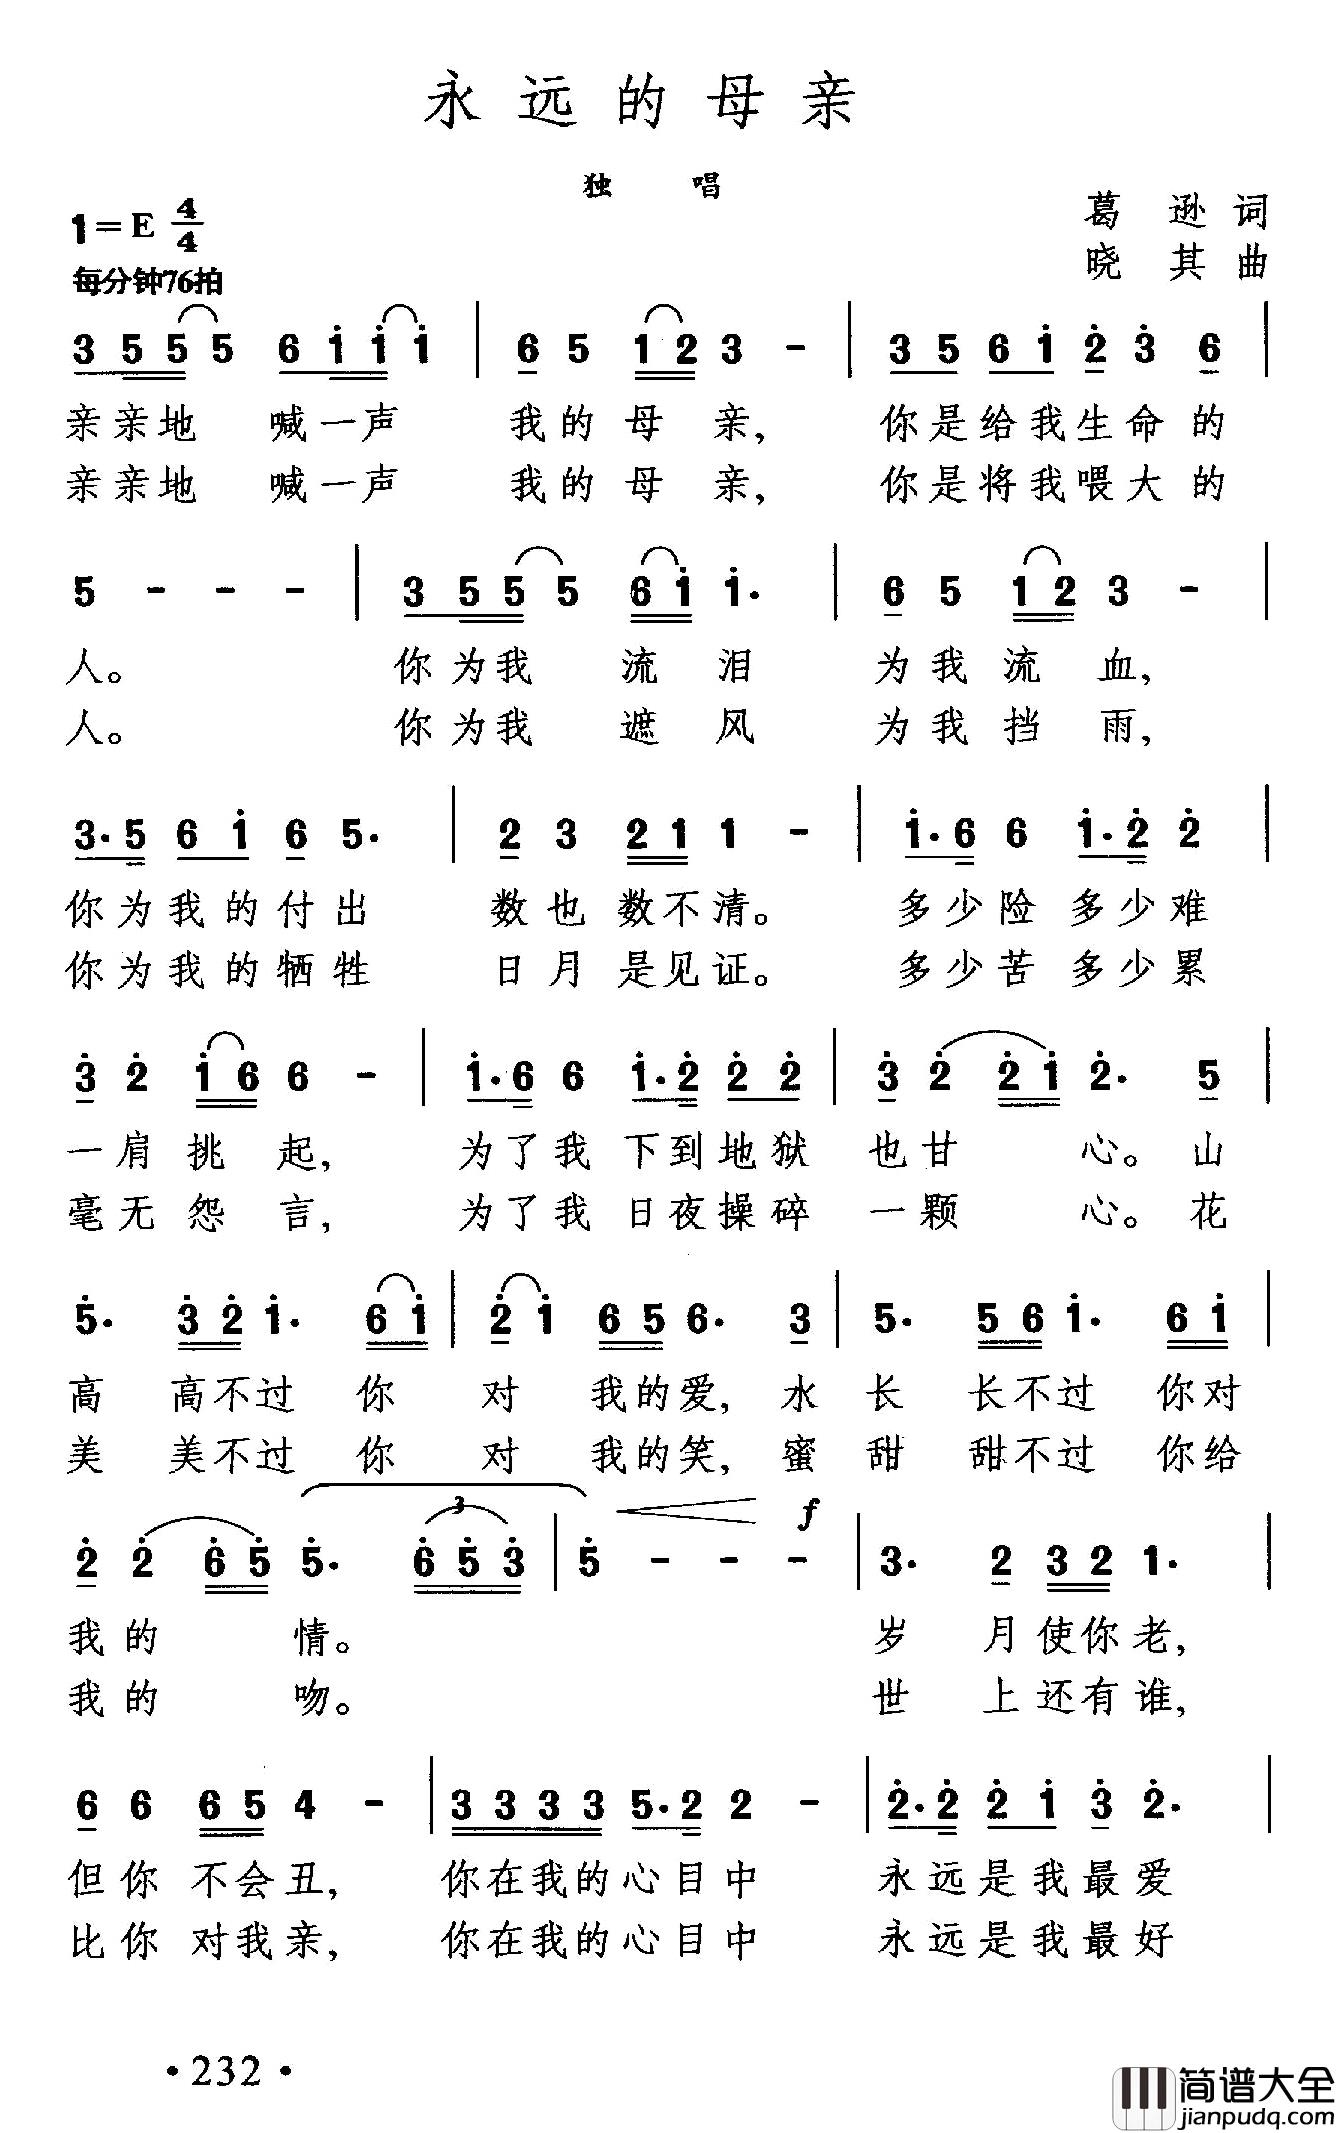 永远的母亲
独 唱
1=E 4/4
葛 逊 词
每分钟76拍
晓 其 曲
3 5 5 5 6 i i i | 6 5 1 2 3 - | 3 5 6 i 2 3 6 |
亲亲地 喊一声 我的母亲, 你是给我生命的
亲亲地 喊一声 我的母亲, 你是将我喂大的
5 - - - | 3 5 5 5 6 i i. | 6 5 1 2 3 - |
人。 你为我 流泪 为我流血,
人。 你为我 遮风 为我挡雨,
3. 5 6 i 6 5. | 2 3 2 1 1 - | i. 6 6 i. 2 2 |
你为我的付出 数也数不清。 多少险多少难
你为我的牺牲 日月是见证。 多少苦多少累
3 2 i 6 6 - | i. 6 6 i. 2 2 2 | 3 2 2 i 2. 5 |
一肩挑起, 为了我下到地狱 也甘心。山
毫无怨言, 为了我日夜操碎 一颗心。花
5. 3 2 i. 6 i | 2 i 6 5 6. 3 | 5. 5 6 i. 6 i |
高 高不过 你 对 我的爱,水 长 长不过 你对
美 美不过 你 对 我的笑,蜜 甜 甜不过 你给
3 f
2 2 6 5 5. 6 5 3 | 5 - - - | 3. 2 3 2 1. |
我的 情。 岁 月使你老,
我的 吻。 世 上还有谁,
6 6 6 5 4 - | 3 3 3 3 5. 2 2 - | 2. 2 2 i 3 2. |
但你不会丑, 你在我的心目中 永远是我最爱
比你对我亲, 你在我的心目中 永远是我最好
·232·
简谱大全
jianpudq.com